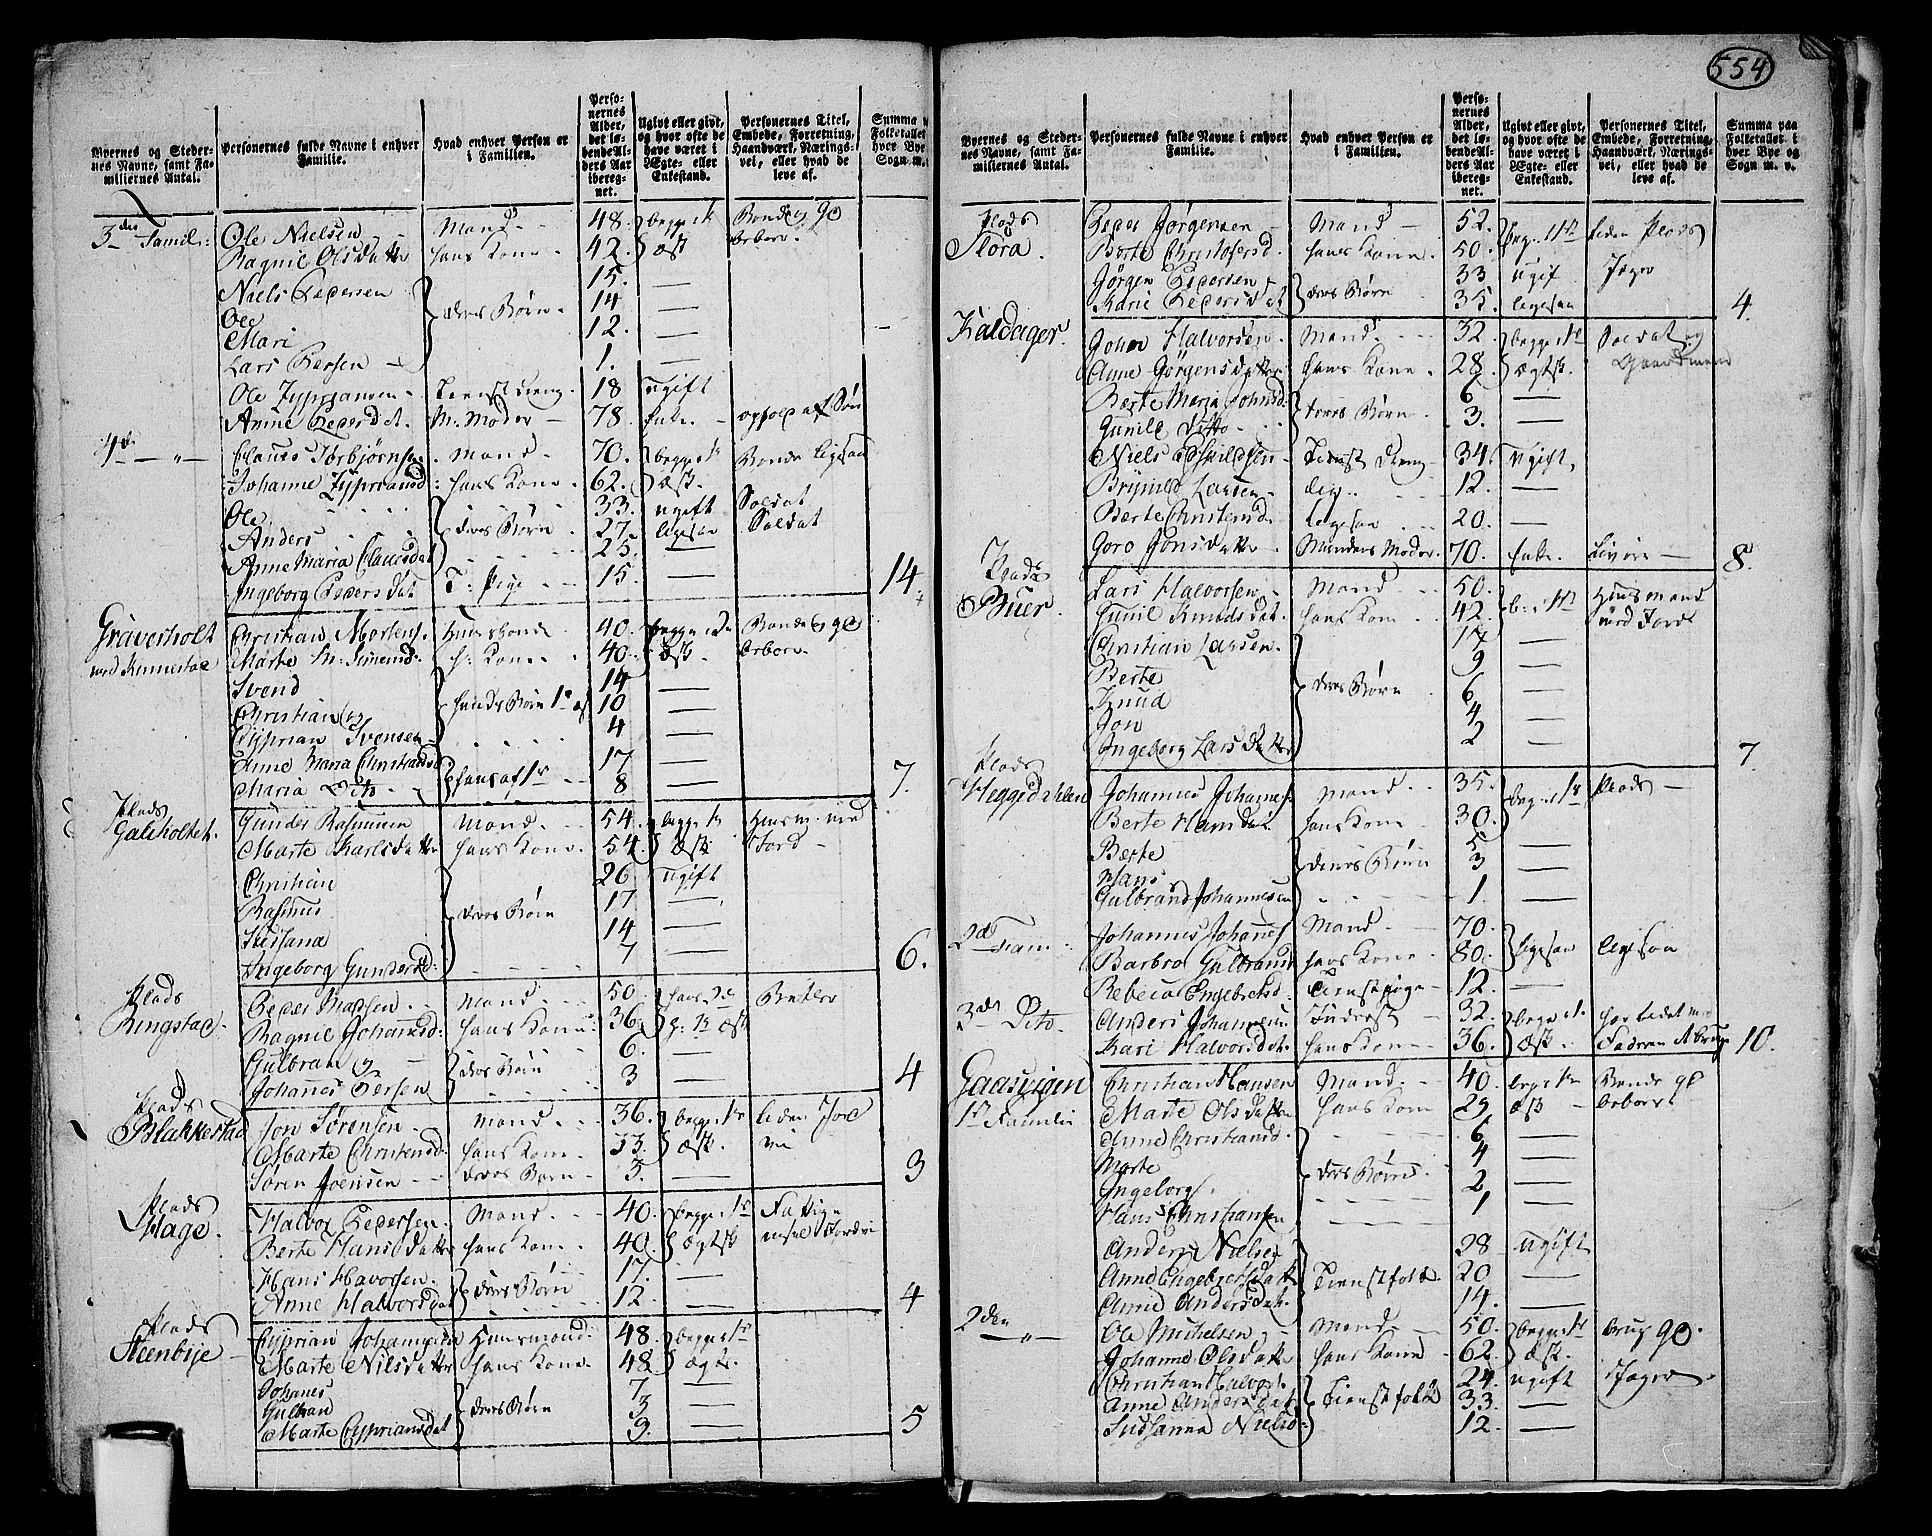 554
Byernes og Stedernes Navne, samt Familiernes Antal.
Personernes fulde Navne i enhver Familie.
Hvad enhver Person er i Familien.
Personernes Alder, det løbende Alders Aar iberegnet.
Ugivt eller givt, og hvor ofte de have været i Ægte- eller Enkestand.
Personernes Titel, Embede, Forretning, Haandværk, Næringsvei, eller hvad de leve af.
Summa Folketallet hver Bye Sogn m.
3die Famil: Ole Nielsen Mand 48. begge 1ste Bonde og
Ragnil Olsdatter hans Kone 42.
Niels Pedersen 15. —
Ole deres Børn. 14 —
Mari 12. —
Lars Persen 1. —
Ole Zypriansen Tienst dreng 18 ugift
Anne Pedersdt. M. Moder 78. Enke
4de — " — Claus Torbjørns. Mand 70. begge 1ste Bonde ligesaa
Johanne Zypriansd: hans Kone 62.
Ole 33. ugift Soldat
Anders deres Børn 27. ligesaa Soldat
Anne Maria Clausdat 25. —
Ingeborg Pedersdat T: Pige 15. — 14
Graverholt Christian Mortens. Huusbonde 40. begge 2de Bonde og
Marte Simensd. h: Kone 40.
Svend 14 —
Christian og hendes Børn 1ste af 10 —
Cyprian Svensen 4 —
Anne Maria Christiansd 17 —
Maria Dito hans af 1ste 8 — 7.
Plads
Galeholtet. Gunder Rasmusen Mand 54. begge 1ste Huusm. med
Marte Karlsdatter hans Kone 54. Jord
Christian 26 ugift
Rasmus deres Børn 17 —
14 —
Ingeborg Gundersd: 7 — 6.
Plads
Ringstad. Peder Madsen Mand 50. hans 2de
Ragnil Johansd: hans Kone 36.
Gulbran og deres Børn 6. —
Johanes Persen 3 — 4
Plads
Blakkestad Jon Sørensen Mand 36. begge 1ste uden Jord
Marte Christensd. hans Kone 33.
Søren Joensen deres Barn 3. — 3
Plads
Hage. Halvor Pedersen Mand 40. begge 1ste Fattig
Berte Hansdatter hans Kone 40.
Hans Havorsen deres Børn 17. —
Anne Halvorsdat 12. — 4
Plads
Steenbije Cyprian Johannesen Huusmand: 48. begge 1ste
Marte Nilsdatter hans Kone 48
Johanes 7 —
Gulbran deres Børn 3 —
Marte Cypriansdat 9. — 5
Byernes og Stedernes Navne, samt Familiernes Antal.
Personernes fulde Navne i enhver Familie.
Hvad enhver Person er i Familien.
Personernes Alder, det løbende Alders Aar iberegnet.
Ugivt eller givt, og hvor ofte de have været i Ægte- eller Enkestand.
Personernes Titel, Embede, Forretning, Haandværk, Næringsvei, eller hvad de leve af.
Summa paa Folketallet i hver Bye og Sogn m. v.
Plads
Flora. Peder Jørgensen Mand 52. beg. 1ste uden Plads
Berte Christofersd. hans Kone 50.
Jørgen Pedersen deres Børn 33 ugif
Karie Pedersdat 35. ligesaa 4.
Kaldager. Johan Halvorsen Mand 32. begge 1ste Soldat og
Anne Jørgensdatter hans Kone 28. Gaardmand
Berte Maria Johnsd: deres Børn 6 —
Gunild Ditto 3. —
Niels Eskildsen Tienst dreng 34. Ugift
Brynild Larsen 12. —
Berte Christensd. ligesaa 20. —
Goro Jonsdatter Mandens Moder. 70. Enke 8.
Plads
Buer. Lars Halvorsen Mand 50. b. 1ste Huusmand
Gunil Knudsdat. hans Kone 42. Jord
Christian Larsen 17 —
Berte 9 —
Knud deres Børn 6 —
Jon 4 —
Ingeborg Larsdatter 2 — 7
Plads
Heggedahlen Johannes Johannes. Mand 35. beg. 1ste Plads
Berte Hansdat hans Kone 30.
Berte 5 —
Hans deres Børn 3 —
Gulbrand Johannesen 1. —
2de Fam: Johannes Johanes Mand 70. ligesaa ligesaa
Barbro Gulbransd hans Kone 80.
Rebeca Engebretsd. Tienstpige 12. —
3die Dito. Anders Johannesen Inderst 32. begge 1.
Kari Halvorsdat. hans Kone 36. 10.
Gaasvigen Christian Hansen Mand 40. begge 1ste Bonde
1ste Familie Marte Olsdatter hans Kone 29.
Anne Christiansd. 6 —
Marte deres Børn 4 —
Ingeborg 2 —
Hans Christiansen 1 —
Anders Nielse 28 ugift
Anne Engebretsdatt Tienstfolk. 20 —
Anne Andersdat. 14. —
2den — " — Ole Michelsen Mand 50. begge 1ste brug
Johanne Olsdatt hans Kone 62.
Christian Halvors. 24. ugift
Anne Andersdat Tienstfolk 33. —
Sussanna Nielsd: 12. —